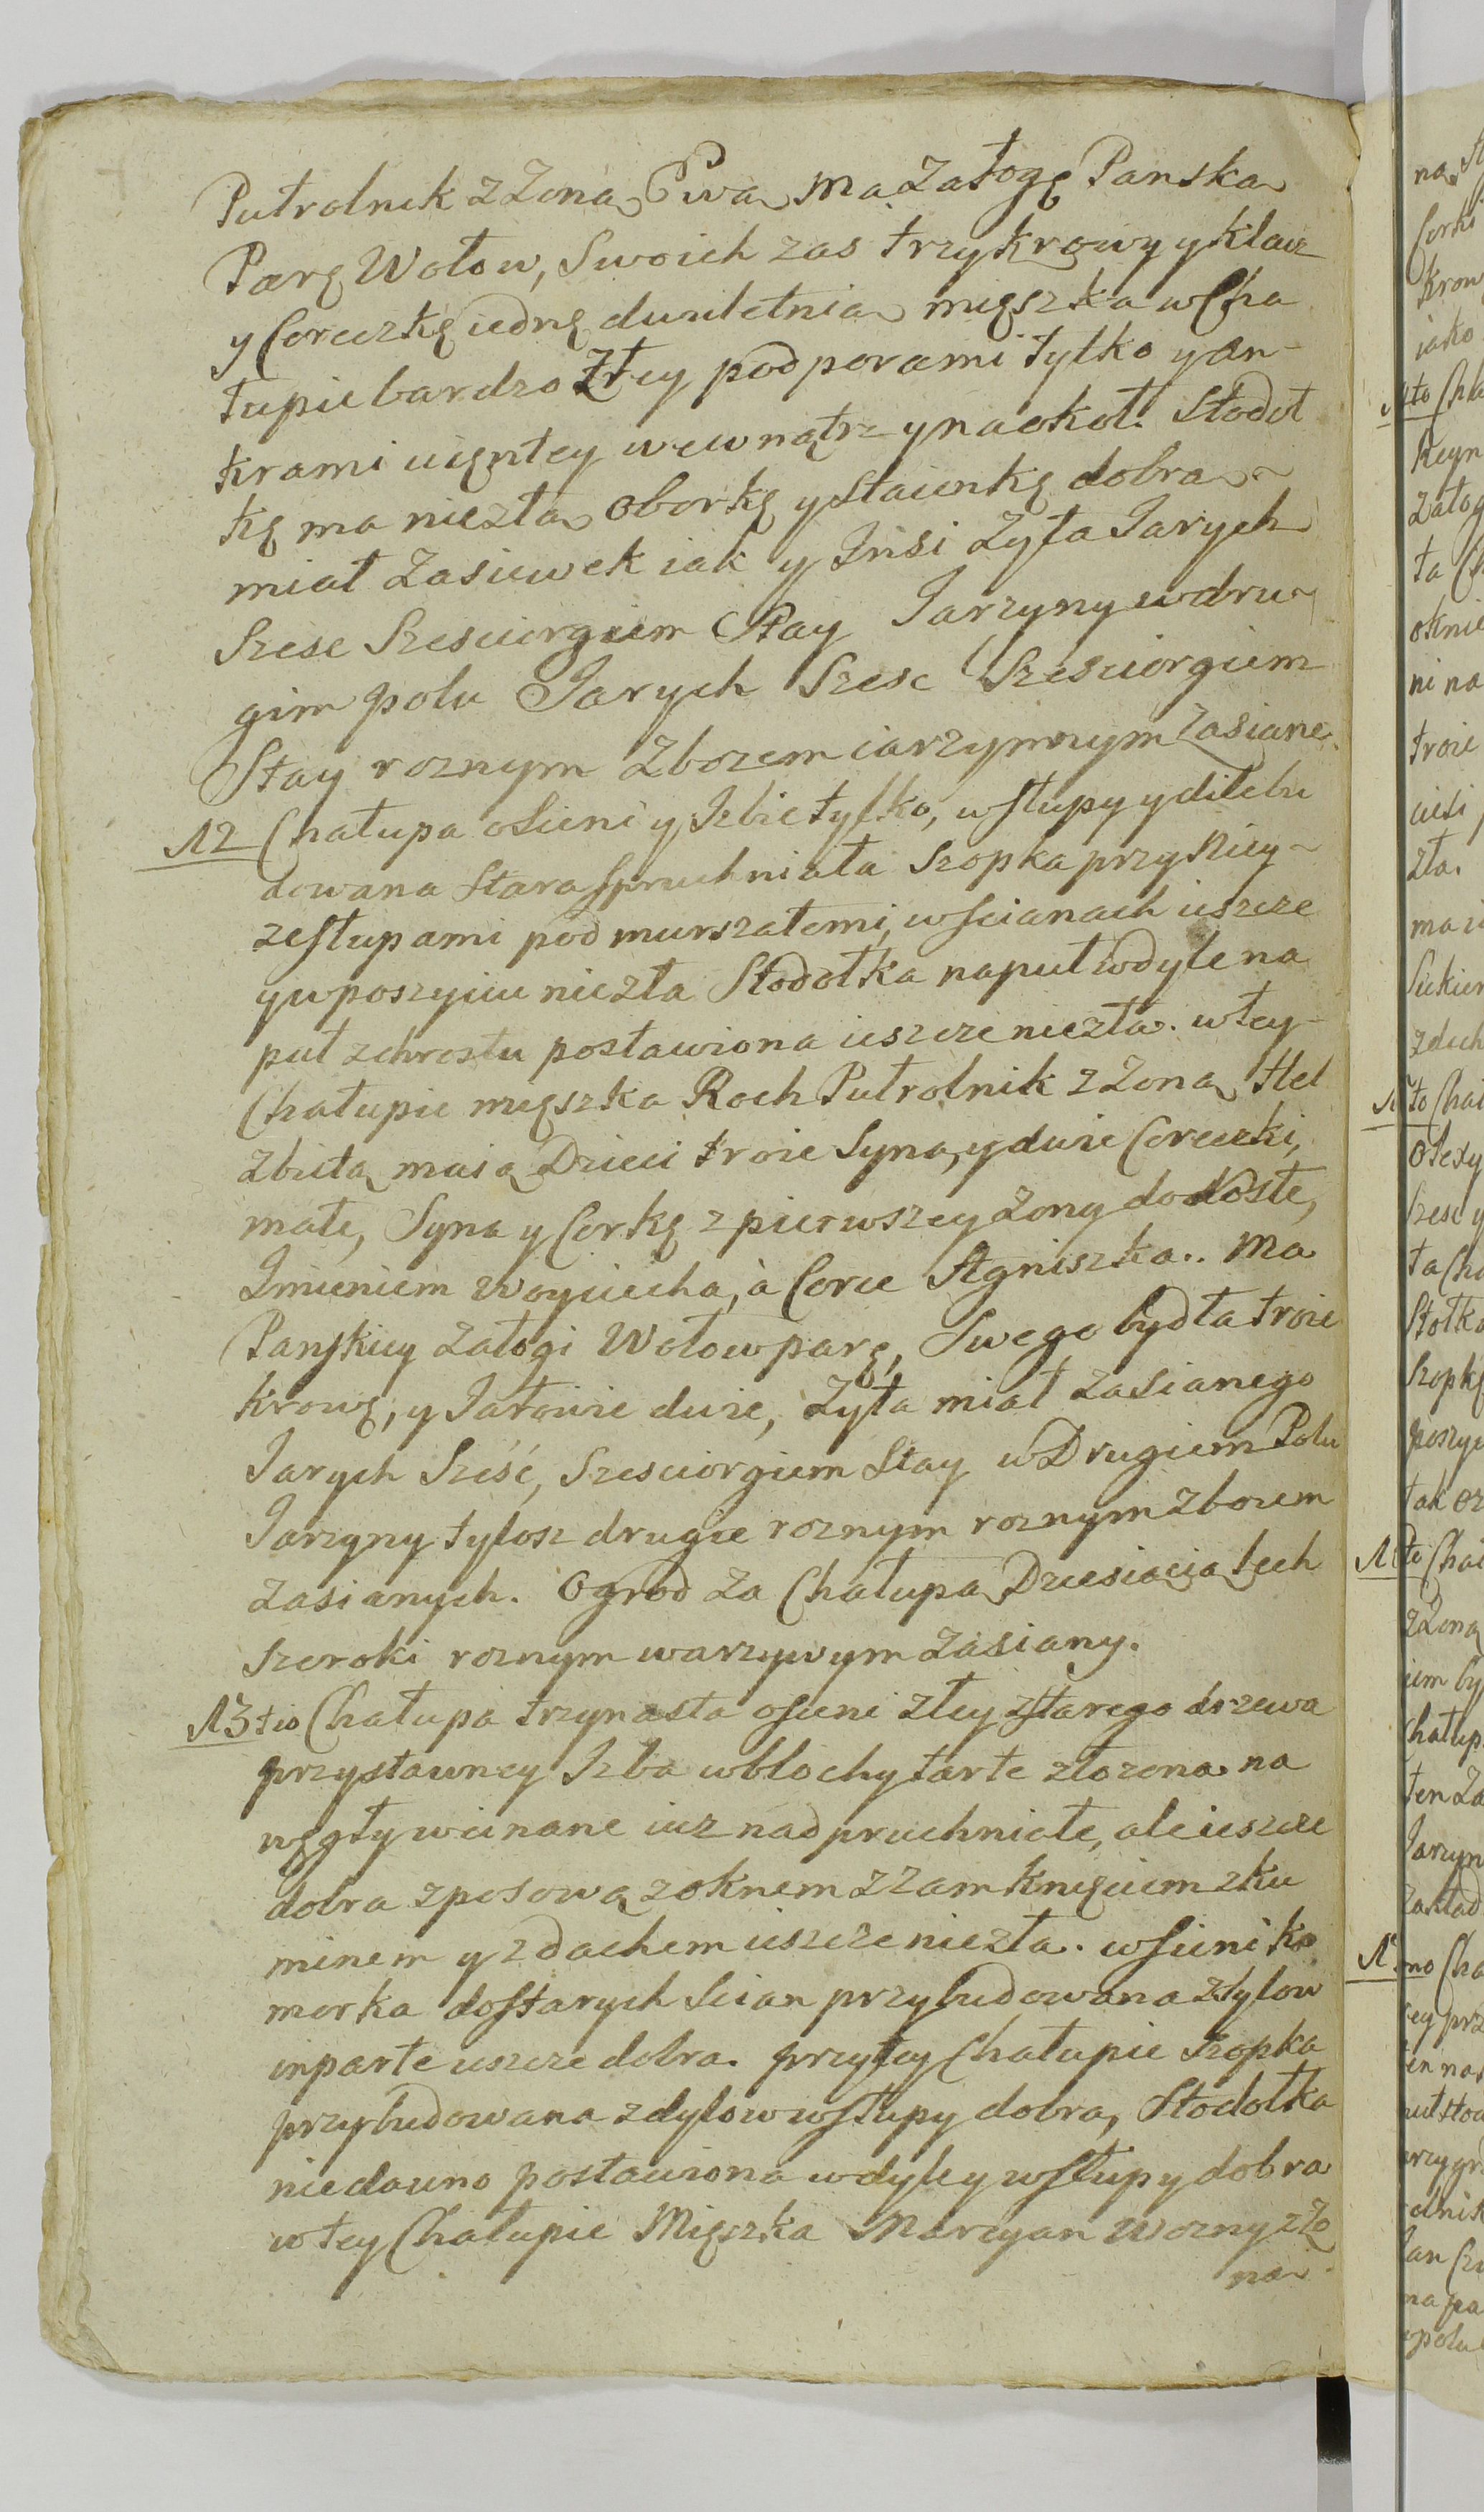 Pułrolnik z Zoną Ewą ma Załogę Panską
Parę Wołow, Swoich zas trzy krowy y klacz
y Coreczkę iednę dwuletnią mięszka w Cha
łupie bardzo Złey podporami tylko y an-
krami uiętey wewnątrz y naokoł. Stodoł
kę ma niezłą Oborkę y Staienkę dobrą
miał Zasiewek iak y Insi Zyta Jarych
Szesc Szesciorgiem Stay Jarzyny w dru
gim polu Jarych Szesc Szesciorgiem
Stay roznym Zbozem iarzynnym Zasiane.
12 Chałupa o Sieni y Izbie tylko, w słupy y dile bu
dowana Stara Spruchniała Szopka przy Niey
ze słupami podmurszałemi, w scianach ieszcze
y w poszyciu niezła Stodołka na puł w dyle na
puł z chrostu postawiona ieszcze niezła. w tey
Chałupie mięszka Roch Pułrolnik z Zoną Hel
zbietą maią Dzieci troie Syna, y dwie Coreczki,
małe, Syna y Corkę z pierwszey Zony dorosłe,
Imieniem Woyciecha, à Corce Agniszka.. Ma
Panskiey Załogi Wołow parę, Swego bydła troie
Krowę, y Jałowie dwie, Zyta miał Zasianego
Jarych Sześć, Szesciorgiem Stay w Drugiem Polu
Jarzyny tylosz drugie roznym roznym zbozem
Zasianych. Ogrod Za Chałupą Dziesiącią lech
Szeroki roznym warzywym Zasiany.
13tio Chałupa trzynasta o Sieni złey z starego drzewa
przystawney Izba w blochy tarte złozona na
węgły wcinane iuz nadpruchniałe, ale ieszcze
dobra z posową z oknem z Zamknięciem z ku
minem y z dachem ieszcze niezła. w Sieni ko
morka do starych Scian przybudowana z dylow
wparte ieszcze dobra. przy tey Chałupie szopka
przybudowana z dylow w słupy dobra, Stodołka
niedawno postawiona w dyle y w słupy dobra
w tey Chałupie Mięszka Marcyan Wozny z Zo
ną